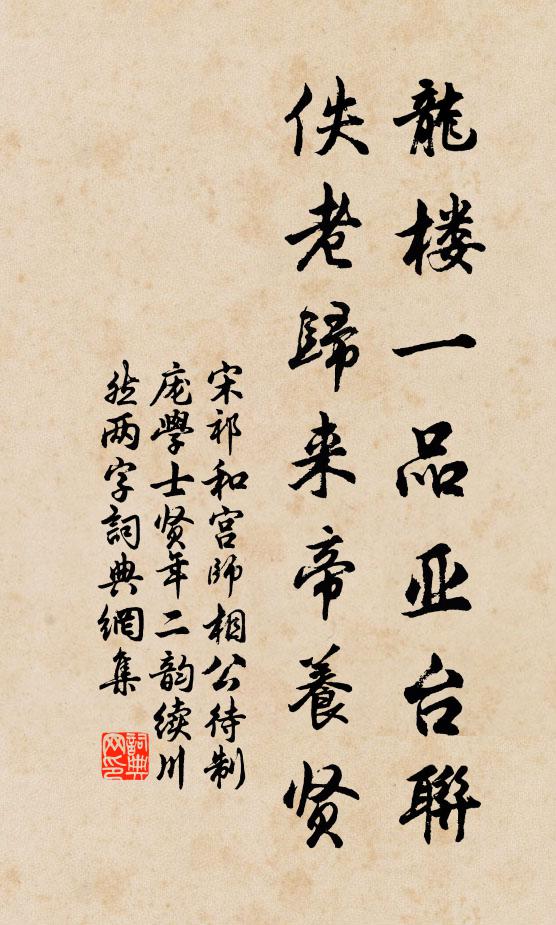 龍楼一品亚台聯
佚老歸来帝養贤
宋祁和宫師相公待制
庞學士贤年二韵续川
然两字詞典網集
詞典
网印